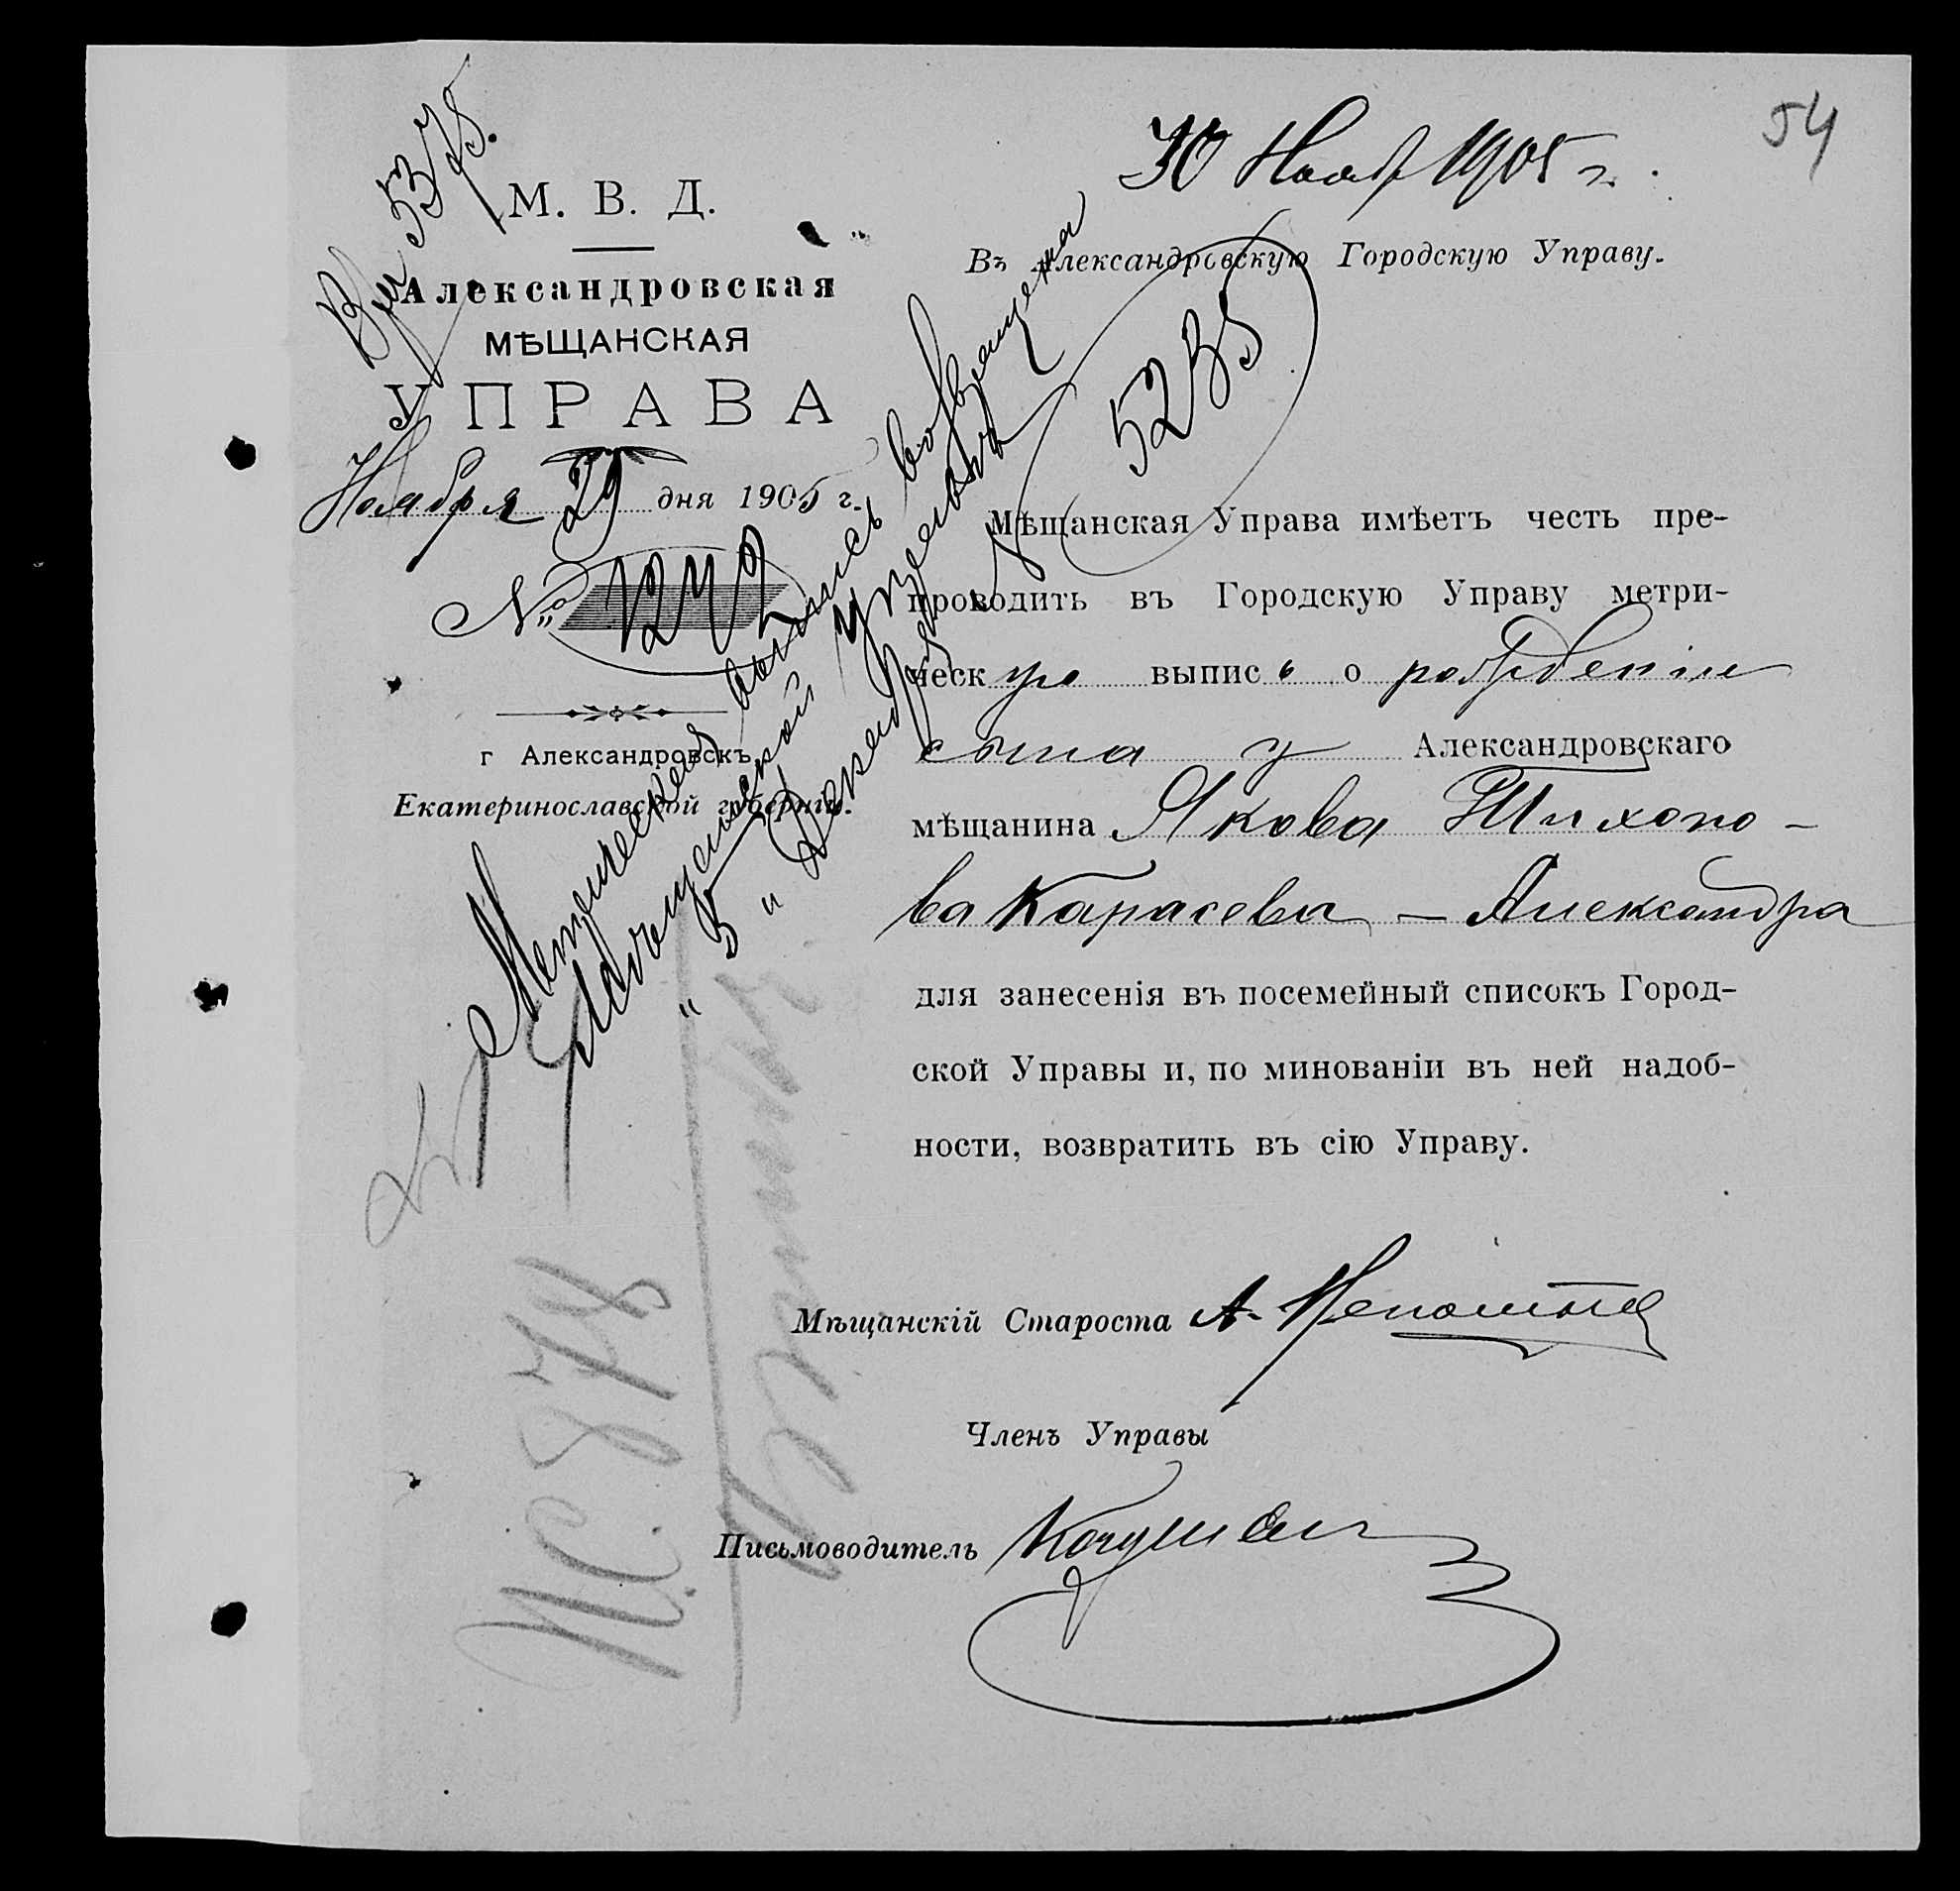 54
30 Нояб 1905 г.
Вх 5375.
М. В. Д.
Александровская
МѢЩАНСКАЯ
УПРАВА
Ноября 29 дня 1905 г.
№ 1242
г Александровскъ
Екатеринославской губерніи.
Въ Александровскую Городскую Управу.
5235
Мѣщанская Управа имѣетъ честь пре-
проводить въ Городскую Управу метри-
ческую выпись о рожденіи
сына у Александровскаго
мѣщанина Якова Тихоно-
ва Карасева — Александра
для занесенія въ посемейный списокъ Город-
ской Управы и, по минованіи въ ней надоб-
ности, возвратить въ сію Управу.
Мѣщанскій Староста А.
Членъ Управы
Письмоводитель
Метрическая выпись возвращена
Мѣщанской управѣ
" 5 " Декабря
П.С. 878